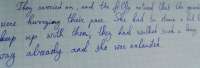 They carried on, and the folks noticed that the
were hurrying their pace. She had to
keep up with them, they had walked such a long
way already and she was exhausted.